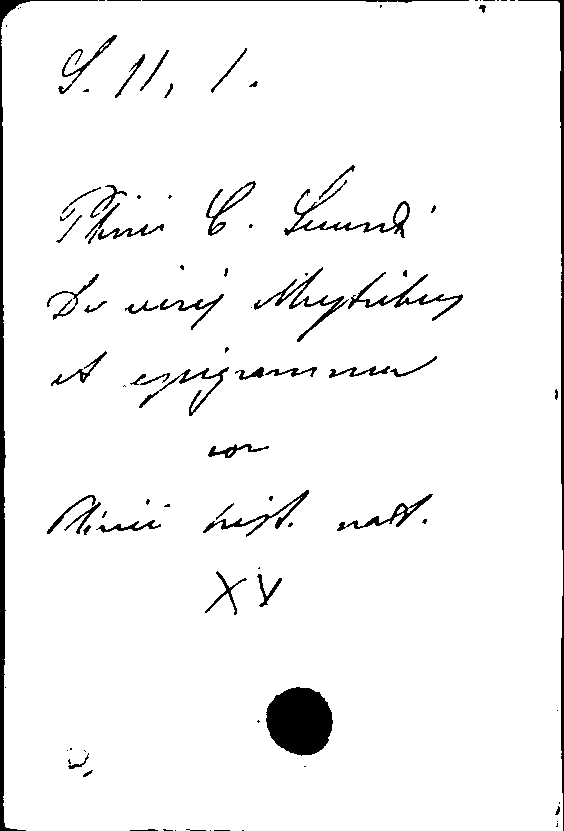 S. 11, 1.
Plinii C. Secundi
De viris illustribus
et epigramma
vor
Plinii hist. nat.
XV